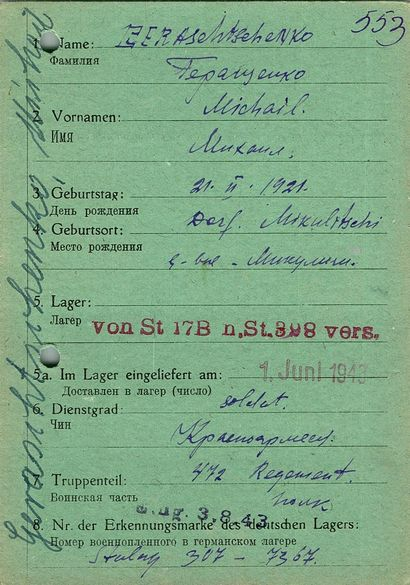 553
1. Name: ZERASchtschenKo
Фамилия Геращенко
2. Vornamen: Michail.
Имя Михаил.
3. Geburtstag: 21. II. 1921.
День рождения
4. Geburtsort: Dorf. Mikulitschi
Место рождения д-вне - Микуличи.
5. Lager:
Лагерь von St 17B n. St. 398 vers.
5a. Im Lager eingeliefert am: 1. Juni 1943
Доставлен в лагерь (число)
6. Dienstgrad: soldat.
Чин Красноармеец.
7. Truppenteil: 472 Regement.
Воинская часть полк
a. ug. 3.8.43
8. Nr. der Erkennungsmarke des deutschen Lagers:
Номер военнопленного в германском лагере
Stalag 307 - 7367.
Geraschtschenko,